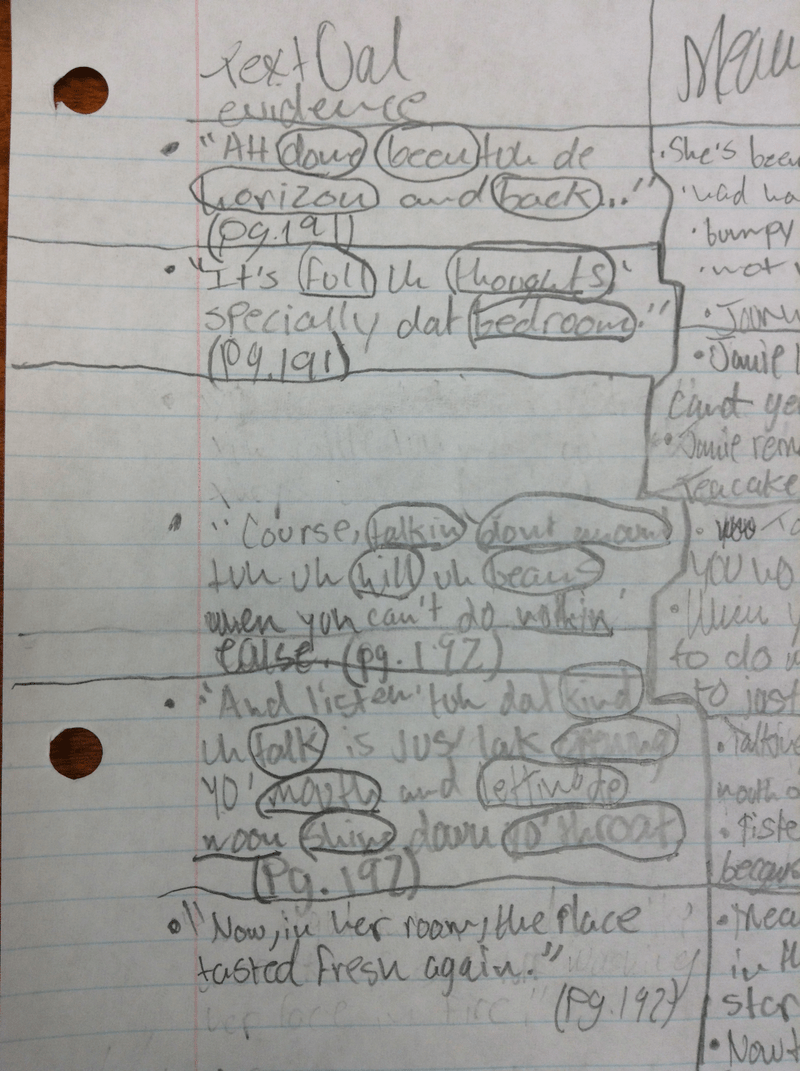 Textual
evidence
• "Ah done been tuh de
horizon and back..."
(pg.191)
• "It's full uh thoughts'
specially dat bedroom."
(pg.191)
• "Course, talkin' dont amount
tuh uh hill uh beans
when yuh can't do nothin'
ealse. (pg.192)
• "And listen' tuh dat kind
uh talk is jus' lak opening
yo' mouth and letting de
moon shine down yo' throat
(Pg.192)
• "Now, in her room, the place
tasted fresh again."
(pg.192)
Mean
• She's been
• had ha
• bumpy
• not
• Janie
Cant
• Janie rem
Teacake
you
• When y
to do
to just
because
• Mea
in th
stor
• Now